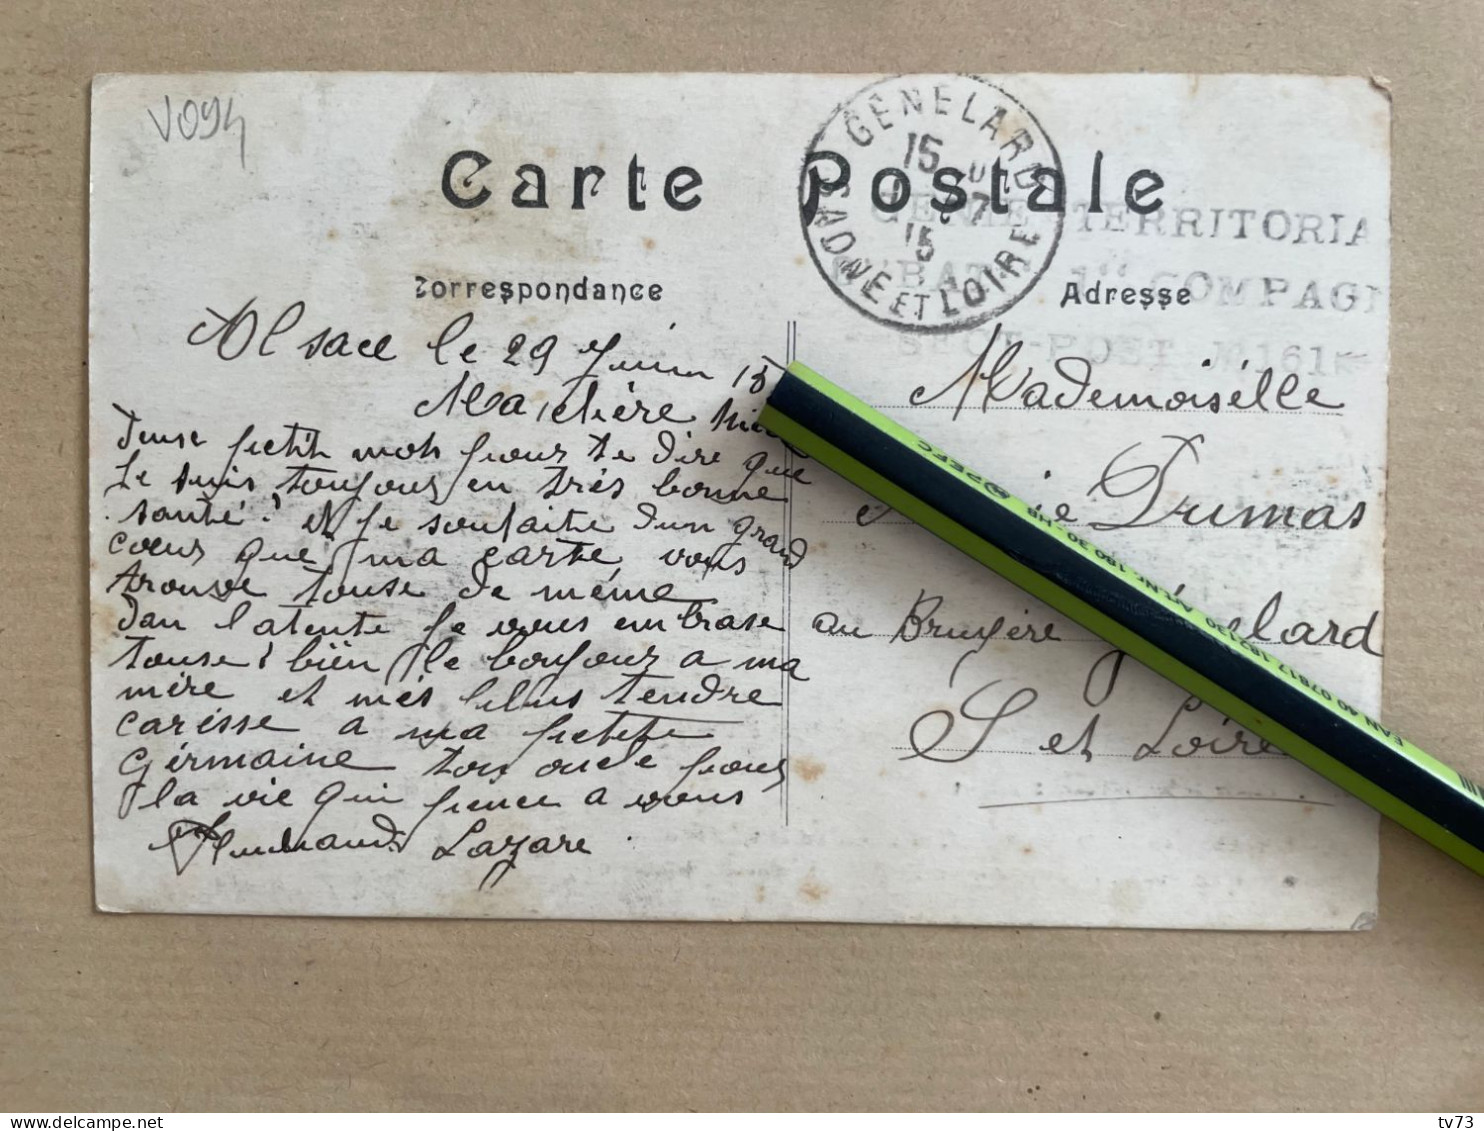 V094
Carte Postale
GÉNELARD
15
15
SAÔNE ET LOIRE
GÉNIE TERRITORIA
BAT 1re COMPAG
161
Correspondance
Adresse
Alsace le 29 Juin 15
Ma chère
Deuse petit mots pour te dire que
Je suis toujour en très bonne
santé. et je soufaite d'un grand
cœur que ma carte vous
trouve touse de même
dan l'atente je vous embrase
touse bien le boujour a ma
mère et mes plus tendre
caresse a ma petite
Germaine ton oncle pour
la vie qui pence a vous
Lazare
Mademoiselle
Dumas
au Bruyère elard
S et Loire
PEFC
tv73